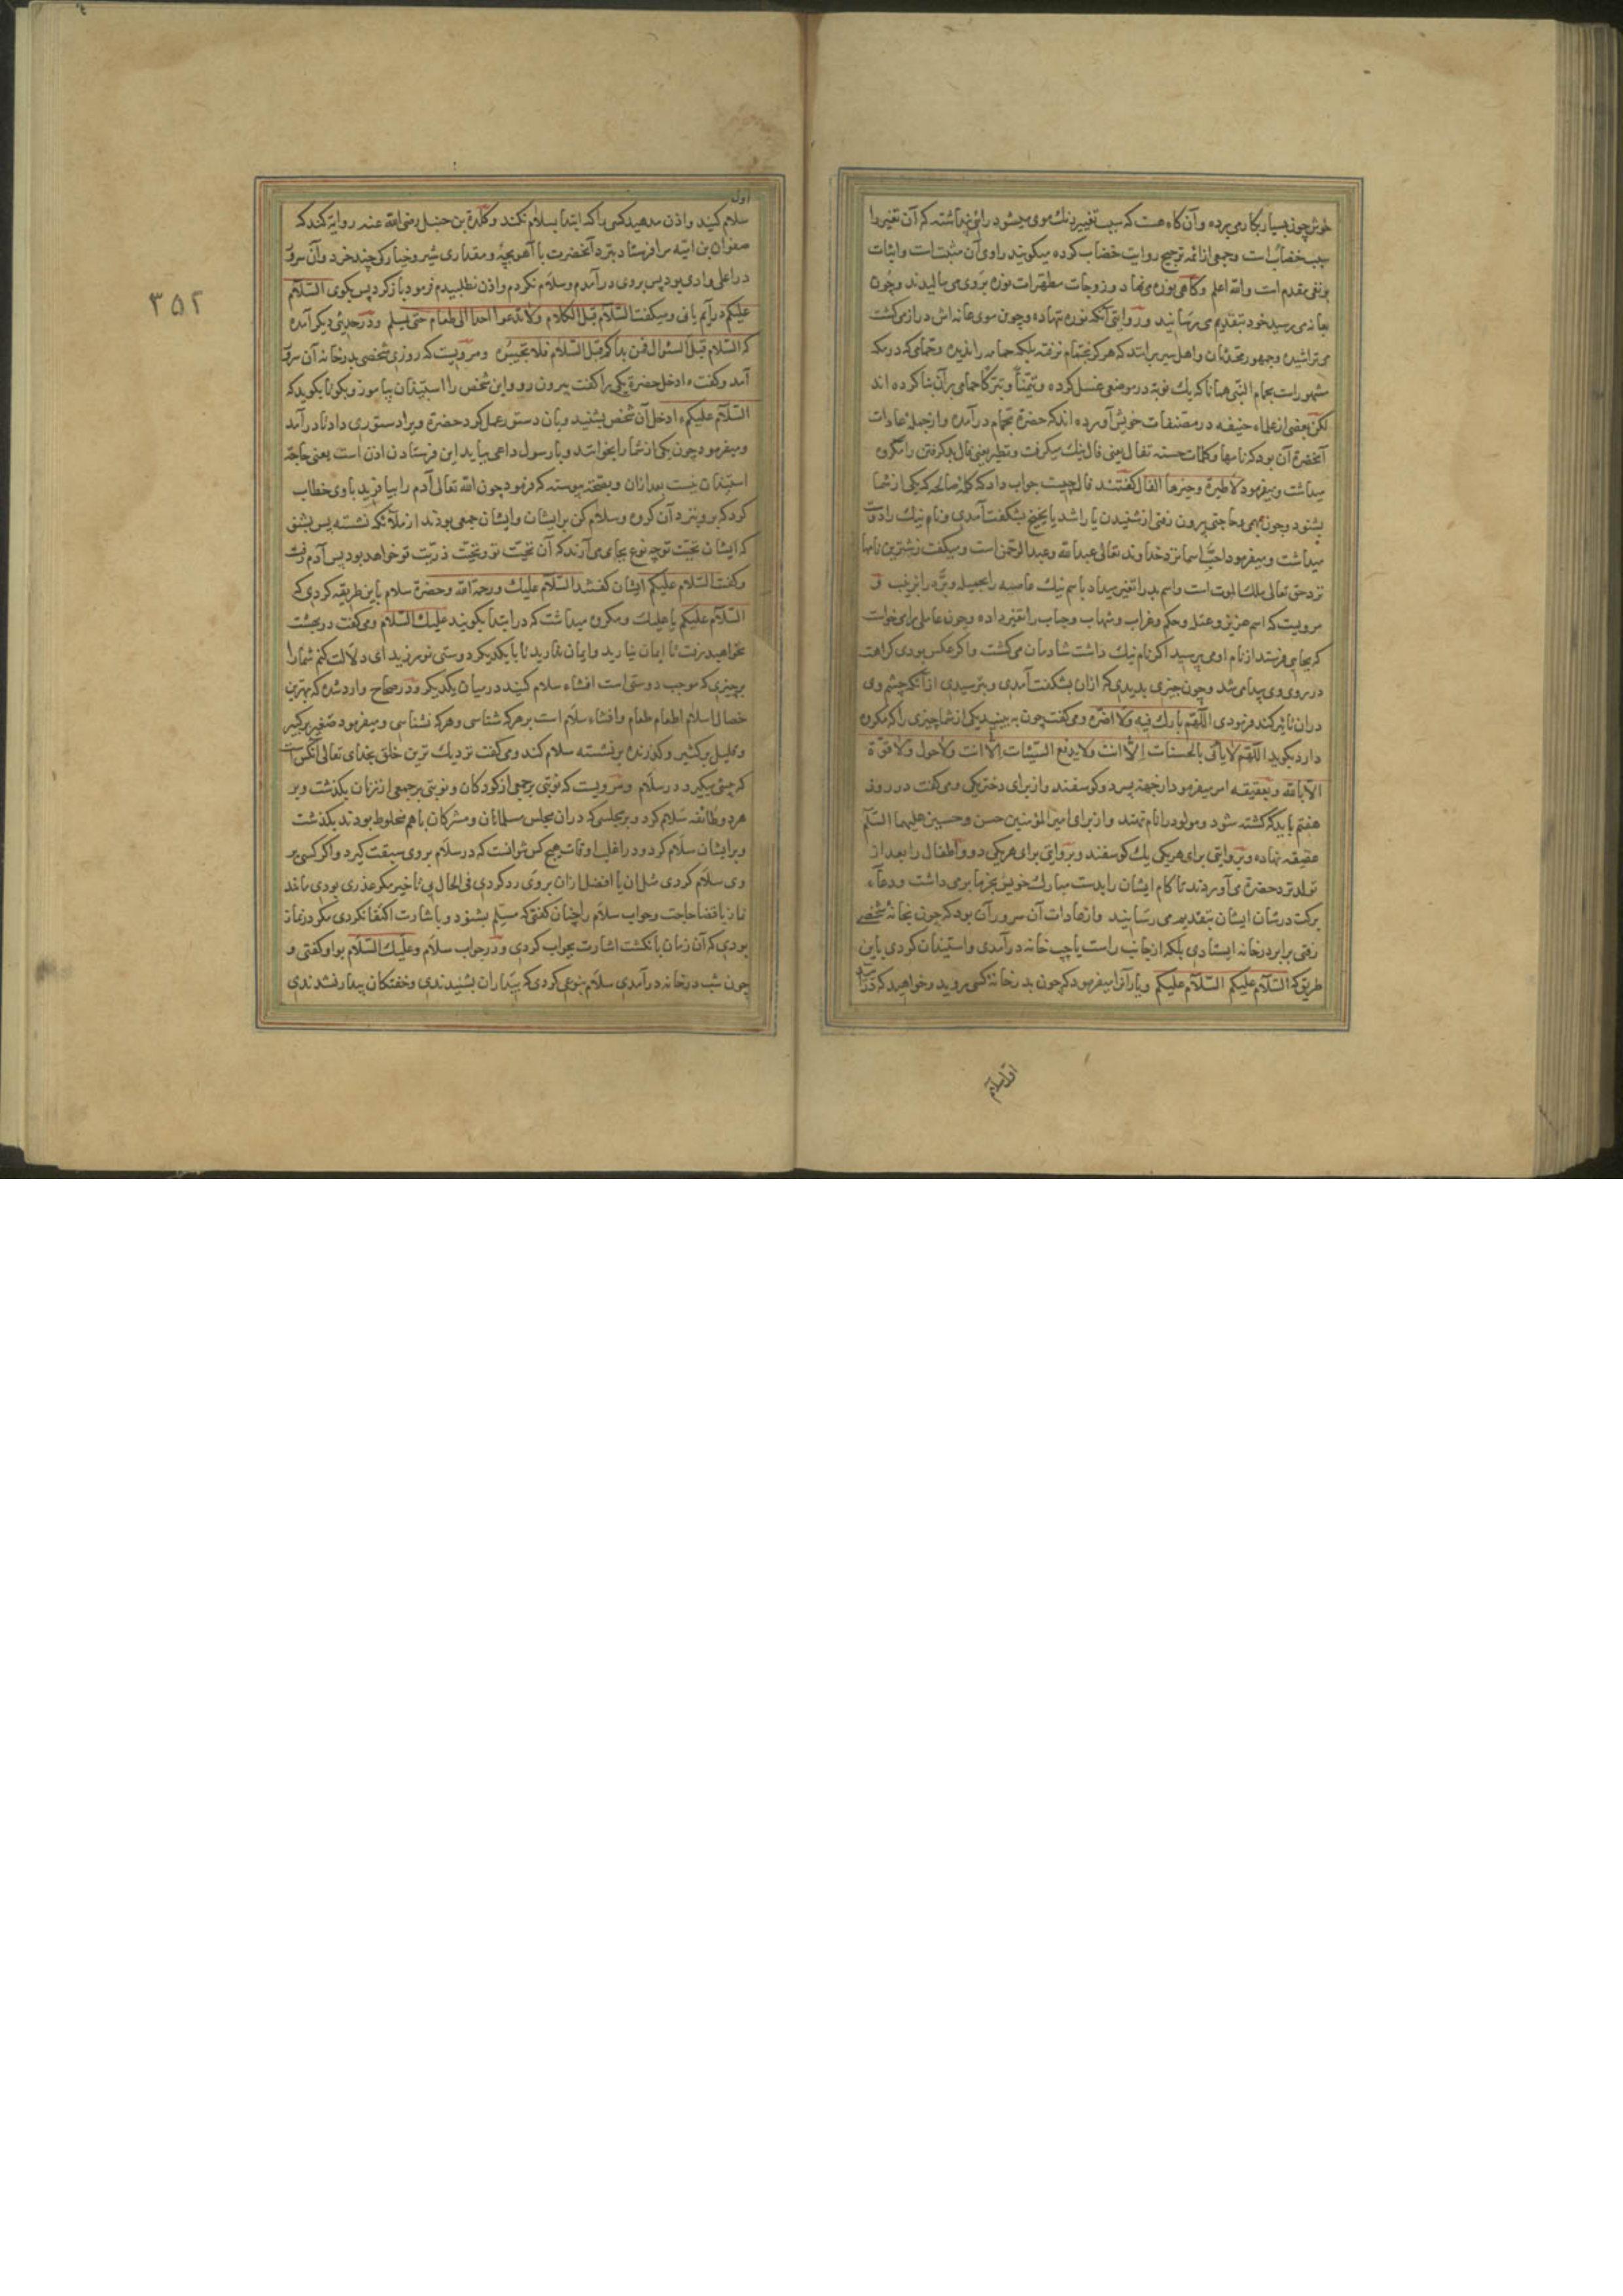 خوش چون بسیار بکار می برده و آن کاه هست که سبب تغییر رنك موی میشود راوی پنداشته که آن تغییر را
سبب خضاب است و جمعی از ائمه ترجیح روایت خضاب کرده میکویند راوی آن مثبت است و اثبات
بر نفی مقدم است والله اعلم و کاهی نوره می نهاد و زوجات مطهرات نوره بر وی می مالیدند و چون
بعانه می رسید خود بتقدیم می رسانید و در روایتی آنکه نوره ننهاده و چون موی عانه اش دراز می کشت
می تراشیده و جمهور محدثان و اهل سیر برانند که هرکز بحمام نرفته بلکه حمام را ندیده و حمامی که در مکه
مشهور است بحمام النبی همانا که یك نوبة در موضعی غسل کرده و تیمناً و تبرکاً حمامی بر آن بنا کرده اند
لکن بعضی از علماء حنیفه در مصنفات خویش آورده اند که حضرة بحمام در آمده و از جمله عادات
آنحضرة آن بود که نامها و کلمات حسنه تفال یعنی فال نیك میکرفت و تطیر یعنی فال بد کرفتن را مکروه
میداشت و میفرمود لا طیرة و خیرها الفال کفتند فال چیست جواب داد که کلمه صالحه که یکی از شما
بشنود و چون بمهمی و حاجتی بیرون رفتی از شنیدن یا راشد یا نجیح بشکفت آمدی و نام نیك را دوست
میداشت و میفرمود احب اسما نزد خداوند تعالی عبد الله و عبد الرحمن است و میکفت زشترین نامها
نزد حق تعالی ملك الموت است و اسم بد را تغیر میداد باسم نیك عاصیه را بجمیله و برّه را بزینب و
مرویست که اسم عزیز و عتل و حکم و غراب و شهاب و حباب را تغیر داده و چون عاملی را میخواست
که بجایی فرستد از نام او می پرسید اکر نام نیك داشت شادمان می کشت و اکر عکس بودی کراهت
در روی وی پیدا می شد و چون چیزی بدیدی که ازان بشکفت آمدی و بترسیدی از آنکه چشم وی
دران تاثیر کند فرمودی اللهم بارك فیه ولا اضره و می کفت چون به بیند یکی از شما چیزی را که مکروه
دارد بکوید اللهم لا یاتی بالحسنات الا انت ولا یدفع السیئات الا انت ولا حول ولا قوة
الا بالله و بعقیقه امر میفرمود از جهة پسر دو کوسفند و از برای دختر یکی و می کفت در روز
هفتم باید که کشته شود و مولود را نام نهند و از برای امیر المؤمنین حسن و حسین علیهما السلم
عقیقه نهاده و بروایتی برای هر یکی یك کوسفند و بروایتی برای هر یکی دو و اطفال را بعد از
تولد نزد حضرة می آوردند تا کام ایشان را بدست مبارك خویش بخرما بر می داشت و دعاء
برکت در شان ایشان بتقدیم می رسانید و از عادات آن سرور آن بود که چون بخانه شخصی
رفتی برابر در خانه ایستادی بلکه از جانب راست یا چپ خانه در آمدی و استیذان کردی باین
طریق که السلام علیکم السلام علیکم و یارانرا میفرمود که چون بدر خانه کسی روید و خواهید که در آیید
اول سلام
اول
سلام کنید و اذن مدهید کسی را که ابتدا بسلام نکند و کلدة بن حنبل رضی الله عنه روایة کند که
صفوان بن امیه مرا فرستاد بنزد آنحضرت با آهو بچه و مقداری شیر و خیار کی چند خرد و آن سرور
در اعلی وادی بود پس بر وی در آمدم و سلام نکردم و اذن نطلبیدم فرمود باز کرد پس بکوی السلام
علیکم در آیم یا نی و میکفت السلام قبل الکلام ولا تدعوا احدا الی طعام حتی یسلم و در حدیثی دیکر آمده
که السلام قبل السئوال فمن بداکم قبل السلام فلا تجیبوه و مرویست که روزی شخصی بدر خانه آن سرور
آمد و کفت ء ادخل حضرة یکی را کفت بیرون رو و این شخص را استیذان بیاموز و بکو تا بکوید که
السلام علیکم ء ادخل آن شخص بشنید و بان دستور عمل کرد حضرة ویرا دستوری داد تا در آمد
و میفرمود چون یکی از شما را بخوانند و با رسول داعی بیاید این فرستادن اذن است یعنی حاجة
استیذان نیست بعد ازان و بصحة پیوسته که فرمود چون الله تعالی آدم را بیافرید با وی خطاب
کرد که برو بنزد آن کروه و سلام کن بر ایشان و ایشان جمعی بودند از ملائکه نشسته پس بشنو
که ایشان تحیت تو چه نوع بجای می آرند که آن تحیت تو و تحیت ذریت تو خواهد بود پس آدم رفت
و کفت السلام علیکم ایشان کفتند السلام علیك و رحمة الله و حضرة سلام باین طریقه کردی که
السلام علیکم یا علیك و مکروه میداشت که در ابتدا بکویند علیك السلام و می کفت در بهشت
نخواهید رفت تا ایمان نیارید و ایمان نیارید تا با یکدیکر دوستی نورزید ای دلالت کنم شما را
بر چیزی که موجب دوستی است افشاء سلام کنید در میان یکدیکر و در صحاح وارد شده که بهترین
خصال اسلام اطعام طعام و افشاء سلام است بر هر که شناسی و هر که نشناسی و میفرمود صغیر بر کبیر
و قلیل بر کثیر و کذرنده بر نشسته سلام کند و می کفت نزدیك ترین خلق بخدای تعالی آنکس است
که پیشی بکیرد در سلام و مرویست که نوبتی بر جمعی از کودکان و نوبتی بر جمعی از زنان بکذشت و بر
هر دو طائفه سلام کرد و بر مجلسی که دران مجلس مسلمانان و مشرکان با هم مخلوط بودند بکذشت
و بر ایشان سلام کرد و در اغلب اوقات هیچ کس نتوانست که در سلام بر وی سبقت کیرد و اکر کسی بر
وی سلام کردی مثل آن یا افضل ازان بر وی رد کردی فی الحال بی تاخیر مکر عذری بودی مانند
نماز یا قضا حاجت و جواب سلام را چنان کفتی که مسلم بشنود و باشارت اکتفا نکردی مکر در نماز
بودی که آن زمان بانکشت اشارت بجواب کردی و در جواب سلام وعلیك السلام بواو کفتی و
چون شب در خانه در آمدی سلام بنوعی کردی که بیداران بشنیدندی و خفتکان بیدار نشدندی
۳۵۲